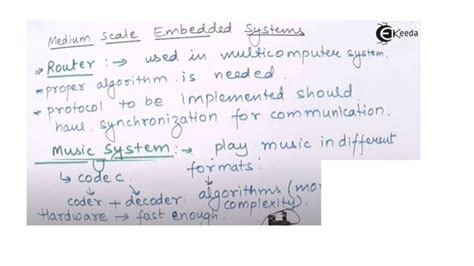 Medium Scale Embedded Systems
Ekeeda
Router :→ used in multicomputer system.
proper algorithm is needed.
protocol to be implemented should
have synchronization for communication.
Music System :→ play music in different
formats:
↳ codec.
algorithms (mo
coder + decoder. complexity).
Hardware → fast enough.